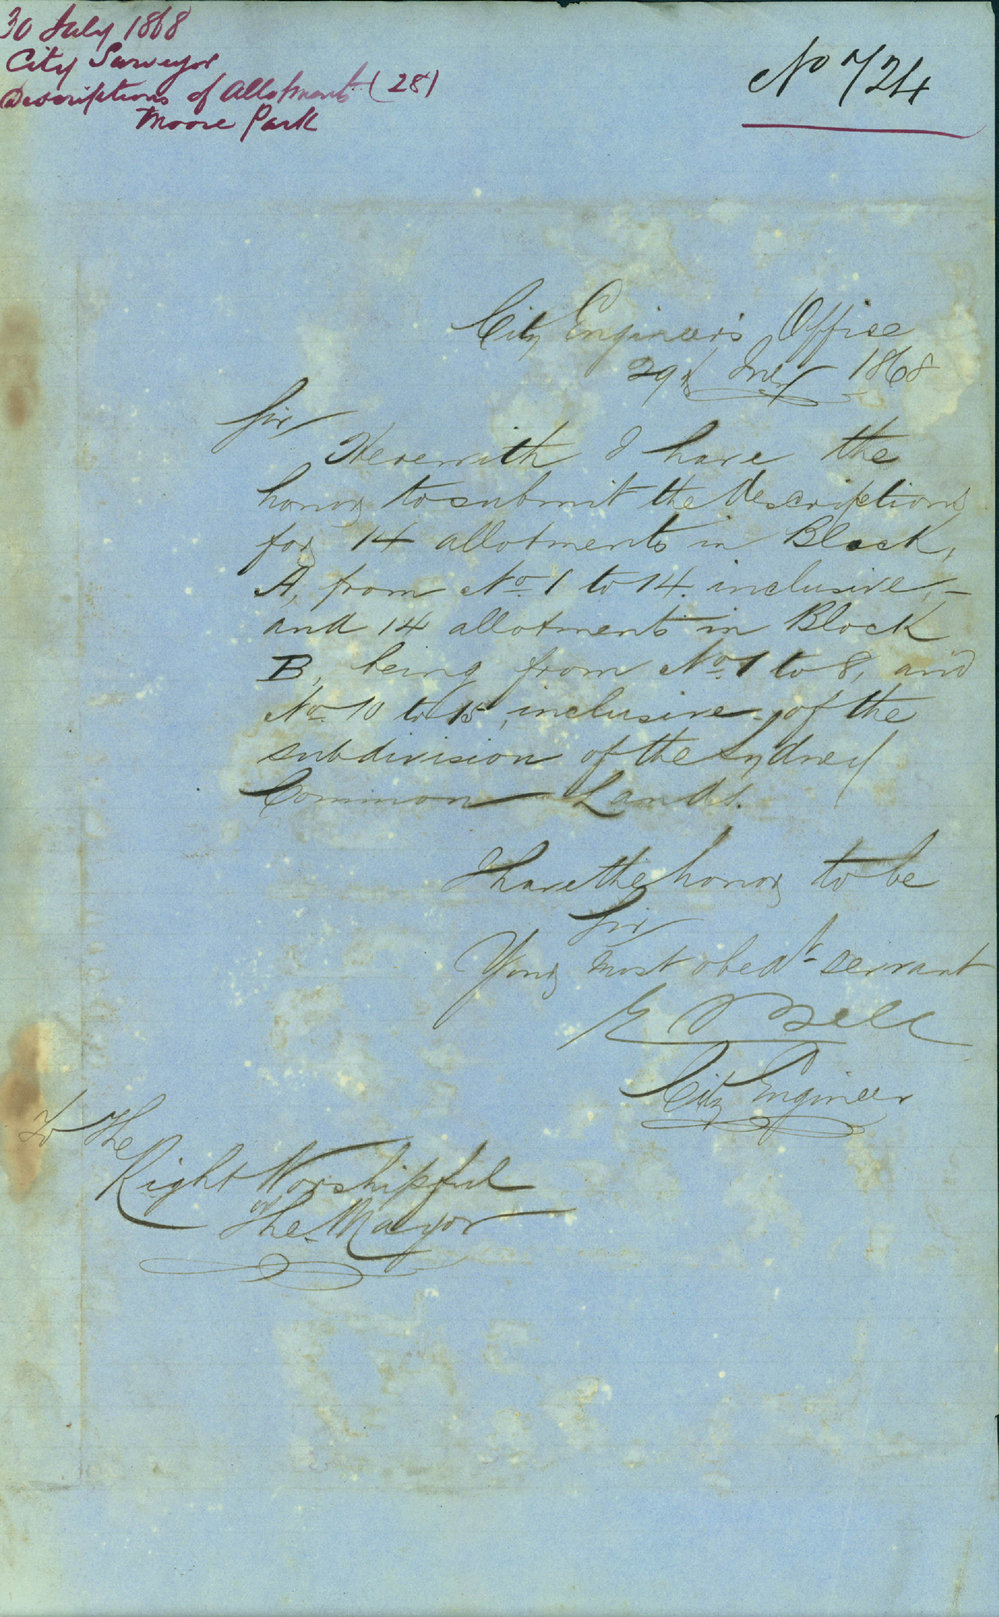 30 July 1868
City Surveyor
Descriptions of Allotments (28)
Moore Park
No 724
City Engineer's Office
29th July 1868
Sir,
Herewith I have the
honor to submit the descriptions
for 14 allotments in Block,
A, from No. 1 to 14. inclusive, –
and 14 allotments in Block
B, being from No. 1 to 8, and
No 10 to 15, inclusive, of the
subdivision of the Sydney
Common Lands.
I have the honor to be
Sir
Your most obedt. servant
E Bell
City Engineer
To The
Right Worshipful
The Mayor